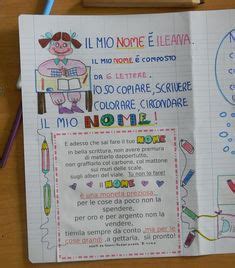 IL MIO NOME É ILEANA.
IL MIO NOME É COMPOSTO
DA 6 LETTERE.
IO SO COPIARE, SCRIVERE
COLORARE, CIRCONDARE
IL MIO NOME!
E adesso che sai fare il tuo NOME
in bella scrittura, non avere premura
di metterlo dappertutto,
non graffiarlo col carbone, col mattone
sui muri delle scale,
sugli alberi del viale. Tu non lo fare!
il NOME
è una moneta preziosa,
per le cose da poco non la
spendere,
per oro e per argento non la
vendere,
tienila sempre da conto ,ma per le
cose grandi .a gettarla, sii pronto!